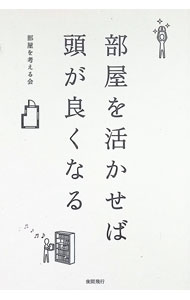 部屋を活かせば
頭が良くなる
部屋を考える会
夜間飛行